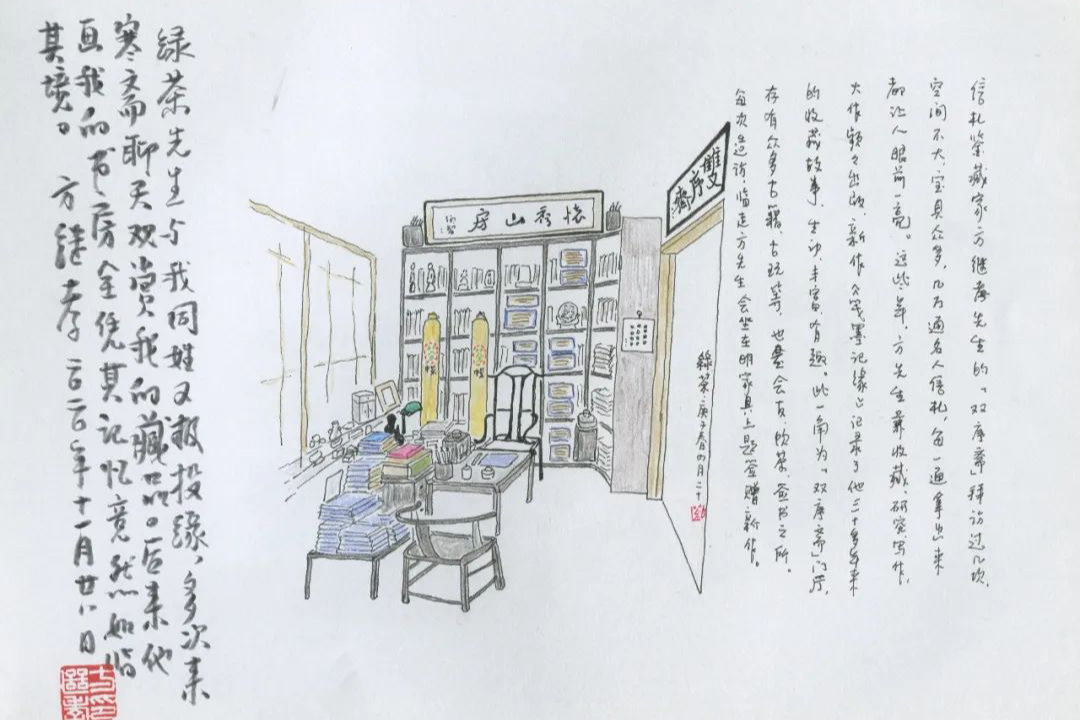 信札鉴藏家方继孝先生的“双序斋”拜访过几次，
空间不大，宝具众多，几万通名人信札，每一通拿出来
都让人眼前一亮。这些年，方先生靠收藏、研究写作，
大作频々出版，新作《笺墨记缘》记录了他三十多年来
的收藏故事，生动、丰富、有趣。此一角为“双序斋”门厅，
存有众多古籍、古玩等，也是会友、饮茶、签书之所。
每次造访，临走方先生会坐在明家具上题签赠新作。
綠茶·庚子春四月二十
雙序齋
山房
绿茶先生与我同姓又极投缘，多次来
寒斋聊天双赏我的藏品。后来他
画我的书房全凭其记忆竟然如临
其境。方继孝二〇二〇年十一月廿八日